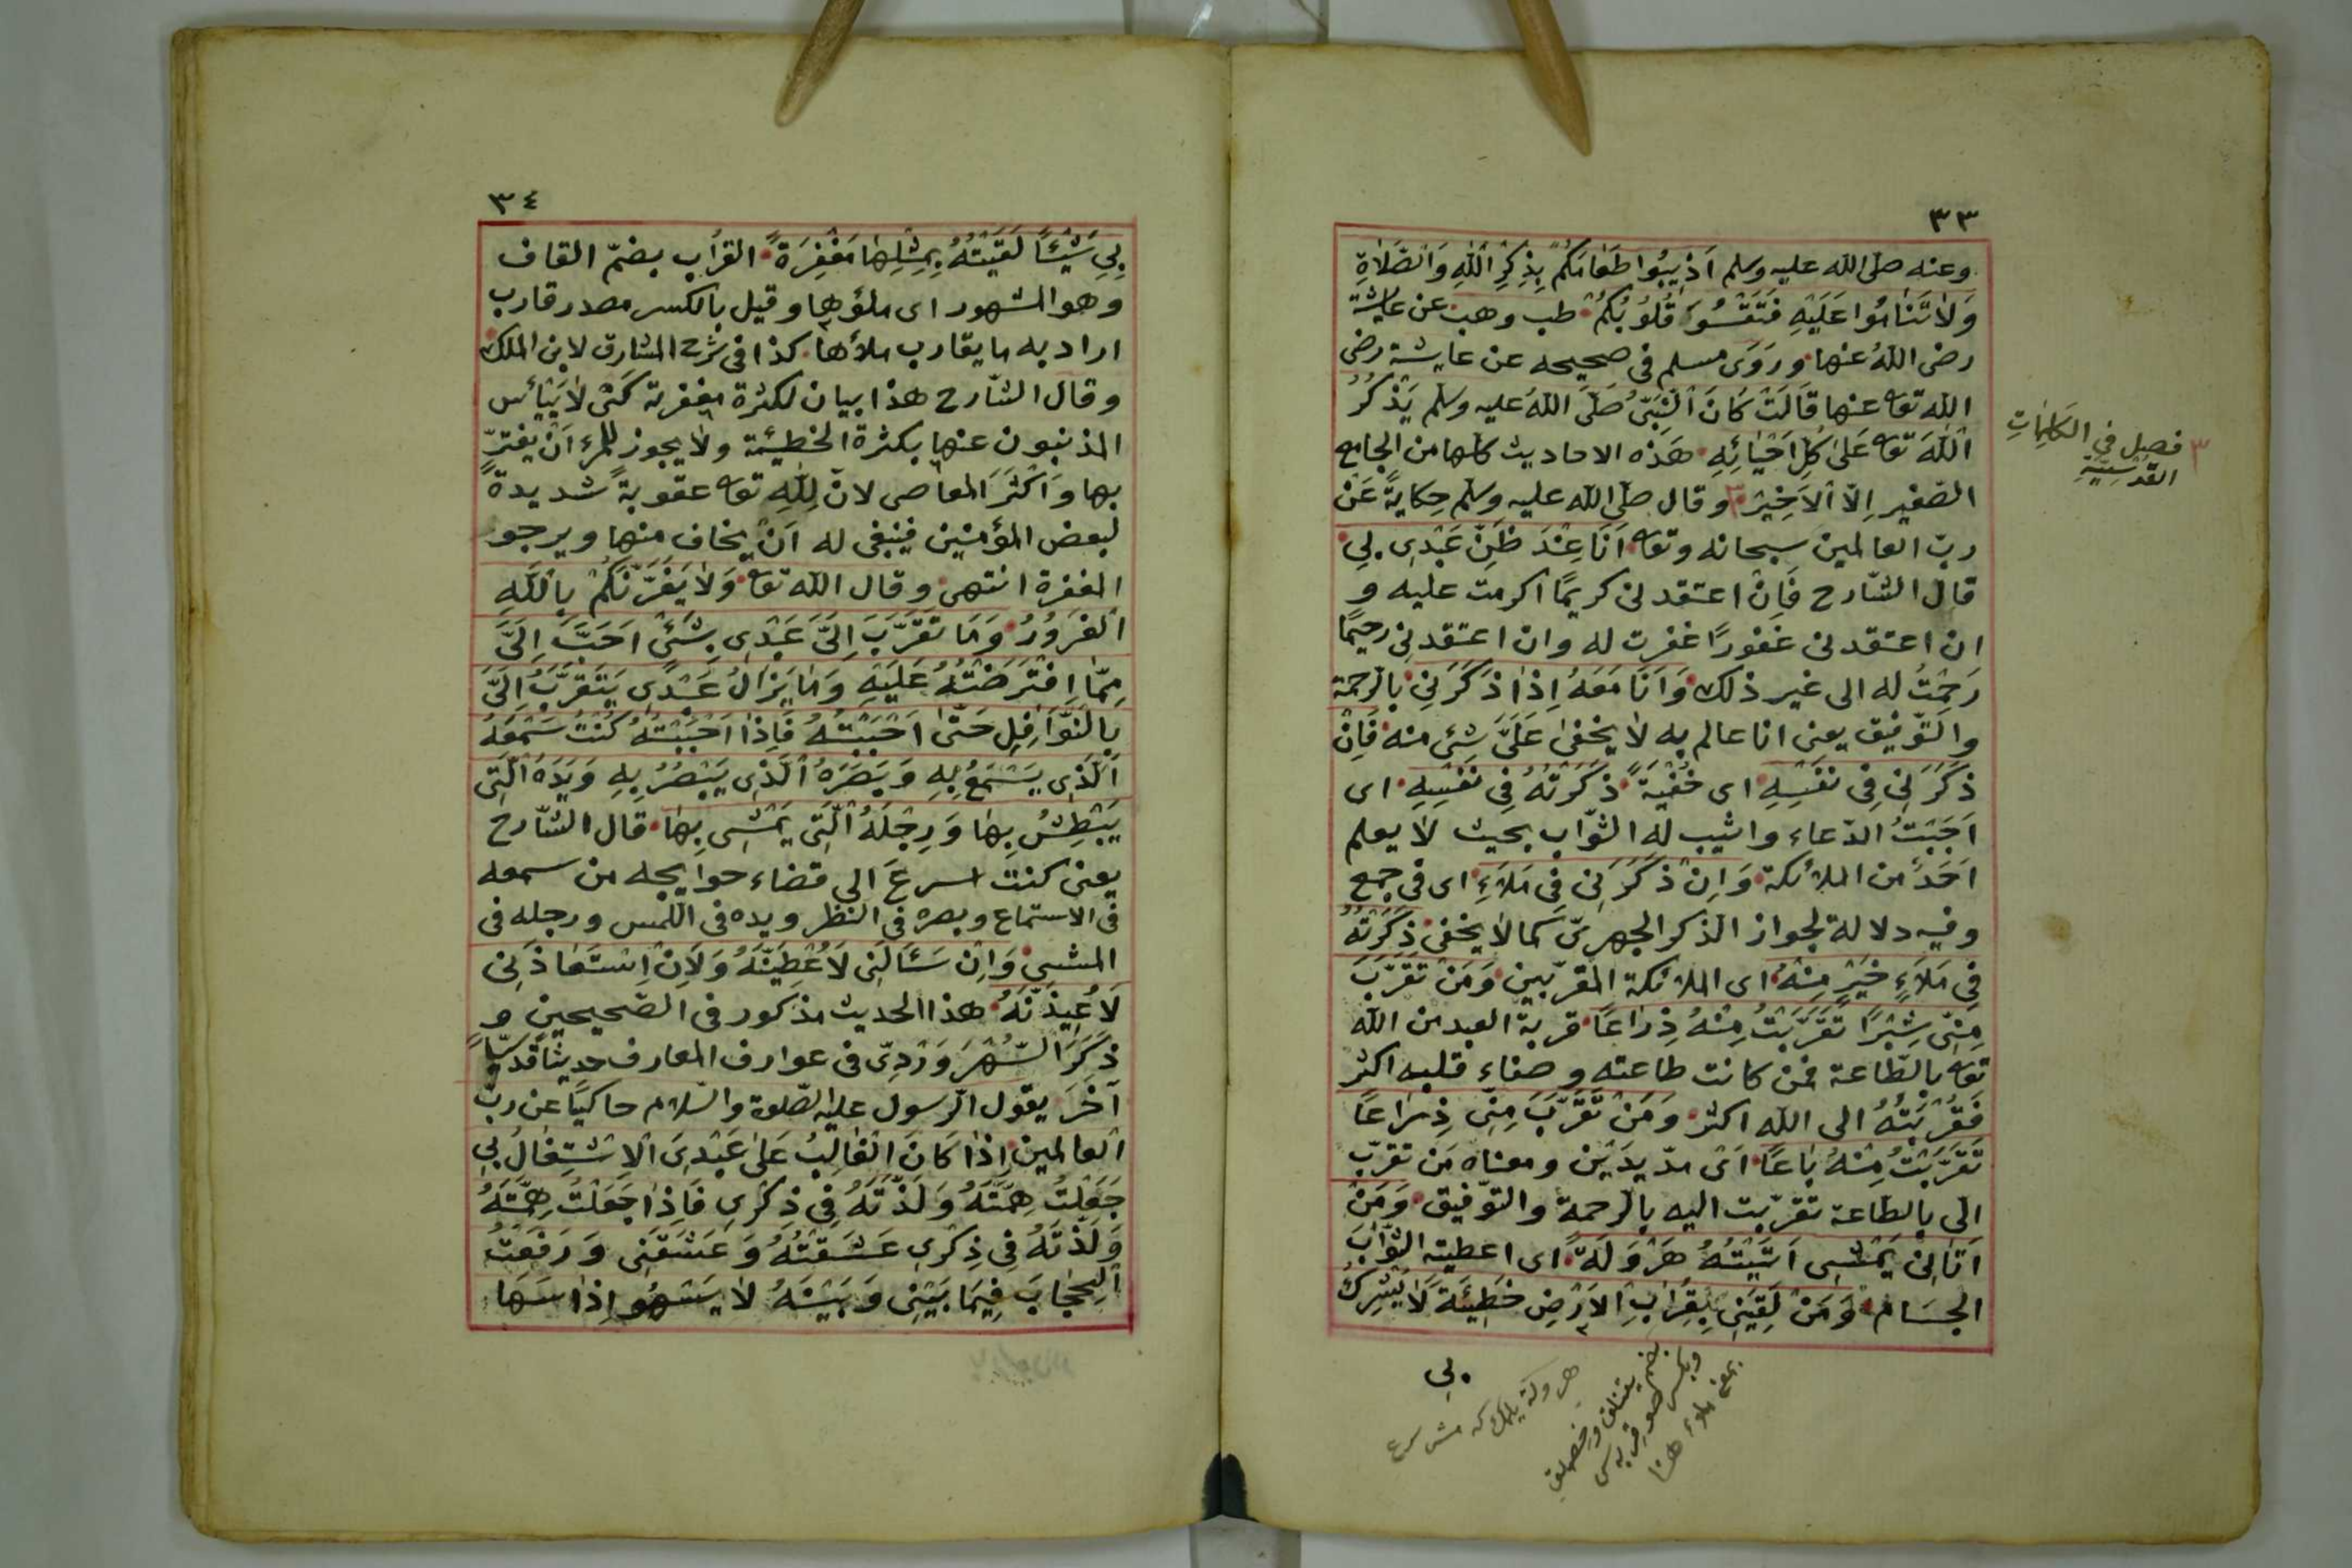 ٣٣
وعنه صلّى الله عليه وسلم اَذِيبُوا طَعَامَكُمْ بِذِكْرِ اللهِ وَالصَّلَاةِ
وَلَا تَنَامُوا عَلَيْهِ فَتَقْسُوَ قُلُوبُكُمْ طب وهب عن عايشة
رضى اللهُ عنها وروَى مسلم فى صحيحه عن عايشة رضى
الله تعا عنها قَالَتْ كَانَ النَّبِىُّ صَلَّى اللهُ عليه وسلم يَذْكُرُ
اللهَ تعا عَلَى كُلِّ اَحْيَائِهِ هَذه الاحاديث كلها من الجامع
الصّغير اِلّا الاَخِيرَ وقال صلّى الله عليه وسلّم حِكايةً عَنْ
ربّ العالمين سبحانه وتعا اَنَا عِنْدَ ظَنِّ عَبْدِى بِي
قال الشّارح فَاِنْ اعتقدنى كريمًا اكرمت عليه و
ان اعتقدنى غفورًا غفرت له وان اعتقدنى رحيمًا
رَحِمْتُ له الى غير ذلك وَاَنَا مَعَهُ اِذَا ذَكَرَنِى بالرّحمة
والتّوفيق يعنى انا عالم به لا يخفى عَلَىَّ شئ منه فَاِنْ
ذَكَرَنِى فِى نَفْسِهِ اى خُفْيَةً ذَكَرْتُهُ فِى نَفْسِهِ اى
اَجَبْتُ الدّعاء واثيب له الثّواب بحيث لا يعلم
اَحَدٌ من الملائكة وَاِنْ ذَكَرَنِى فِى مَلَاءٍ اى فى جمع
وفيه دلالة لجواز الذكر الجهرىّ كما لا يخفى ذَكَرْتُهُ
فِى مَلَاءٍ خَيْرٍ مِنْهُ اى الملائكة المقرّبين وَمَنْ تَقَرَّبَ
مِنِّى شِبْرًا تَقَرَّبْتُ مِنْهُ ذِرَاعًا قربة العبد من الله
تعا بالطّاعة فمن كانت طاعته وصفاء قلبه اكثر
فَقُرْبَتُهُ الى الله اكثر وَمَنْ تَقَرَّبَ مِنِّى ذِرَاعًا
تَقَرَّبْتُ مِنْهُ بَاعًا اَىْ مدّ يدَيْن ومعناه مَن تقرّب
الىّ بالطاعة تقرّبت اليه بالرّحمة والتوّفيق وَمَنْ
اَتَانِى يَمْشِى اَتَيْتُهُ هَرْوَلَةً اى اعطيته الثّوَابَ
الجسَام وَمَنْ لَقِيَنِى بِقُرَابِ الْاَرْضِ خَطِيئَةً لَا يُشْرِكُ
بِى
فصل فى الكلمات
القدسيّة
٣٤
بِى شَيْئًا لَقِيتُهُ بِمِثْلِهَا مَغْفِرَةً القرُاب بضمّ القاف
وهو المشهور اى ملؤها وقيل بالكسر مصدر قارب
اراد به ما يقارب ملأها كذا فى شرح المشارق لابن الملك
وقال الشّارح هذا بيان لكثرة مغفرته كَىْ لَا يَيْأَس
المذنبون عنها بكثرة الخطيئة ولا يجوز للمرء اَنْ يغترّ
بها وَاَكْثَرَ المعاصى لانّ لِلّٰهِ تعا عقوبةً شديدةً
لبعض المؤمنين فينبغى له اَنْ يخاف منها ويرجو
المغفرة انتهى وقال الله تعا وَلَا يَغُرَّنَّكُمْ بِاللَّهِ
الْغَرُورُ وَمَا تَقَرَّبَ اِلَىَّ عَبْدِى بِشَئٍ اَحَبَّ اِلَىَّ
مِمَّا افْتَرَضْتُهُ عَلَيْهِ وَمَا يَزَالُ عَبْدِى يَتَقَرَّبُ اِلَىَّ
بِالنَّوَافِلِ حَتَّى اَحْبَبْتُهُ فَاِذَا اَحْبَبْتُهُ كُنْتُ سَمْعَهُ
الَّذِى يَسْتَمِعُ بِهِ وَبَصَرَهُ الَّذِى يَبْصُرُ بِهِ وَيَدَهُ الَّتِى
يَبْطِشُ بِهَا وَرِجْلَهُ الَّتِى يَمْشِى بِهَا قال الشّارح
يعنى كنت اسرعَ الى قضاء حوايجه من سمعه
فى الاستماع وبصره فى النظر ويده فى اللّمس ورجله فى
المشى وَاِنْ سَئَالَنِى لَاُعْطِيَنَّهُ وَلَاِنْ اِسْتَعَاذَنِى
لَاُعِيذَنَّهُ هذا الحديث مذكور فى الصّحيحين و
ذَكَرَ السُّهْرَوَرْدِىّ فى عوارف المعارف حديثاً قدسيّاً
آخَرَ يقول الرّسول عليه الصّلوة والسّلام حاكيًا عن ربّ
العالمين اِذَا كَانَ الْغَالِبُ عَلَى عَبْدِىَ الْاِشْتِغَالُ بِى
جَعَلْتُ هِمَّتَهُ وَلَذَّتَهُ فِى ذِكْرِى فَاِذَا جَعَلْتُ هِمَّتَهُ
وَلَذَّتَهُ فِى ذِكْرِى عَشَقْتُهُ وَعَشَقَنِى وَرَفَعْتُ
الْحِجَابَ فِيمَا بَيْنِى وَبَيْنَهُ لَا يَسْهُو اِذَا سَهَا